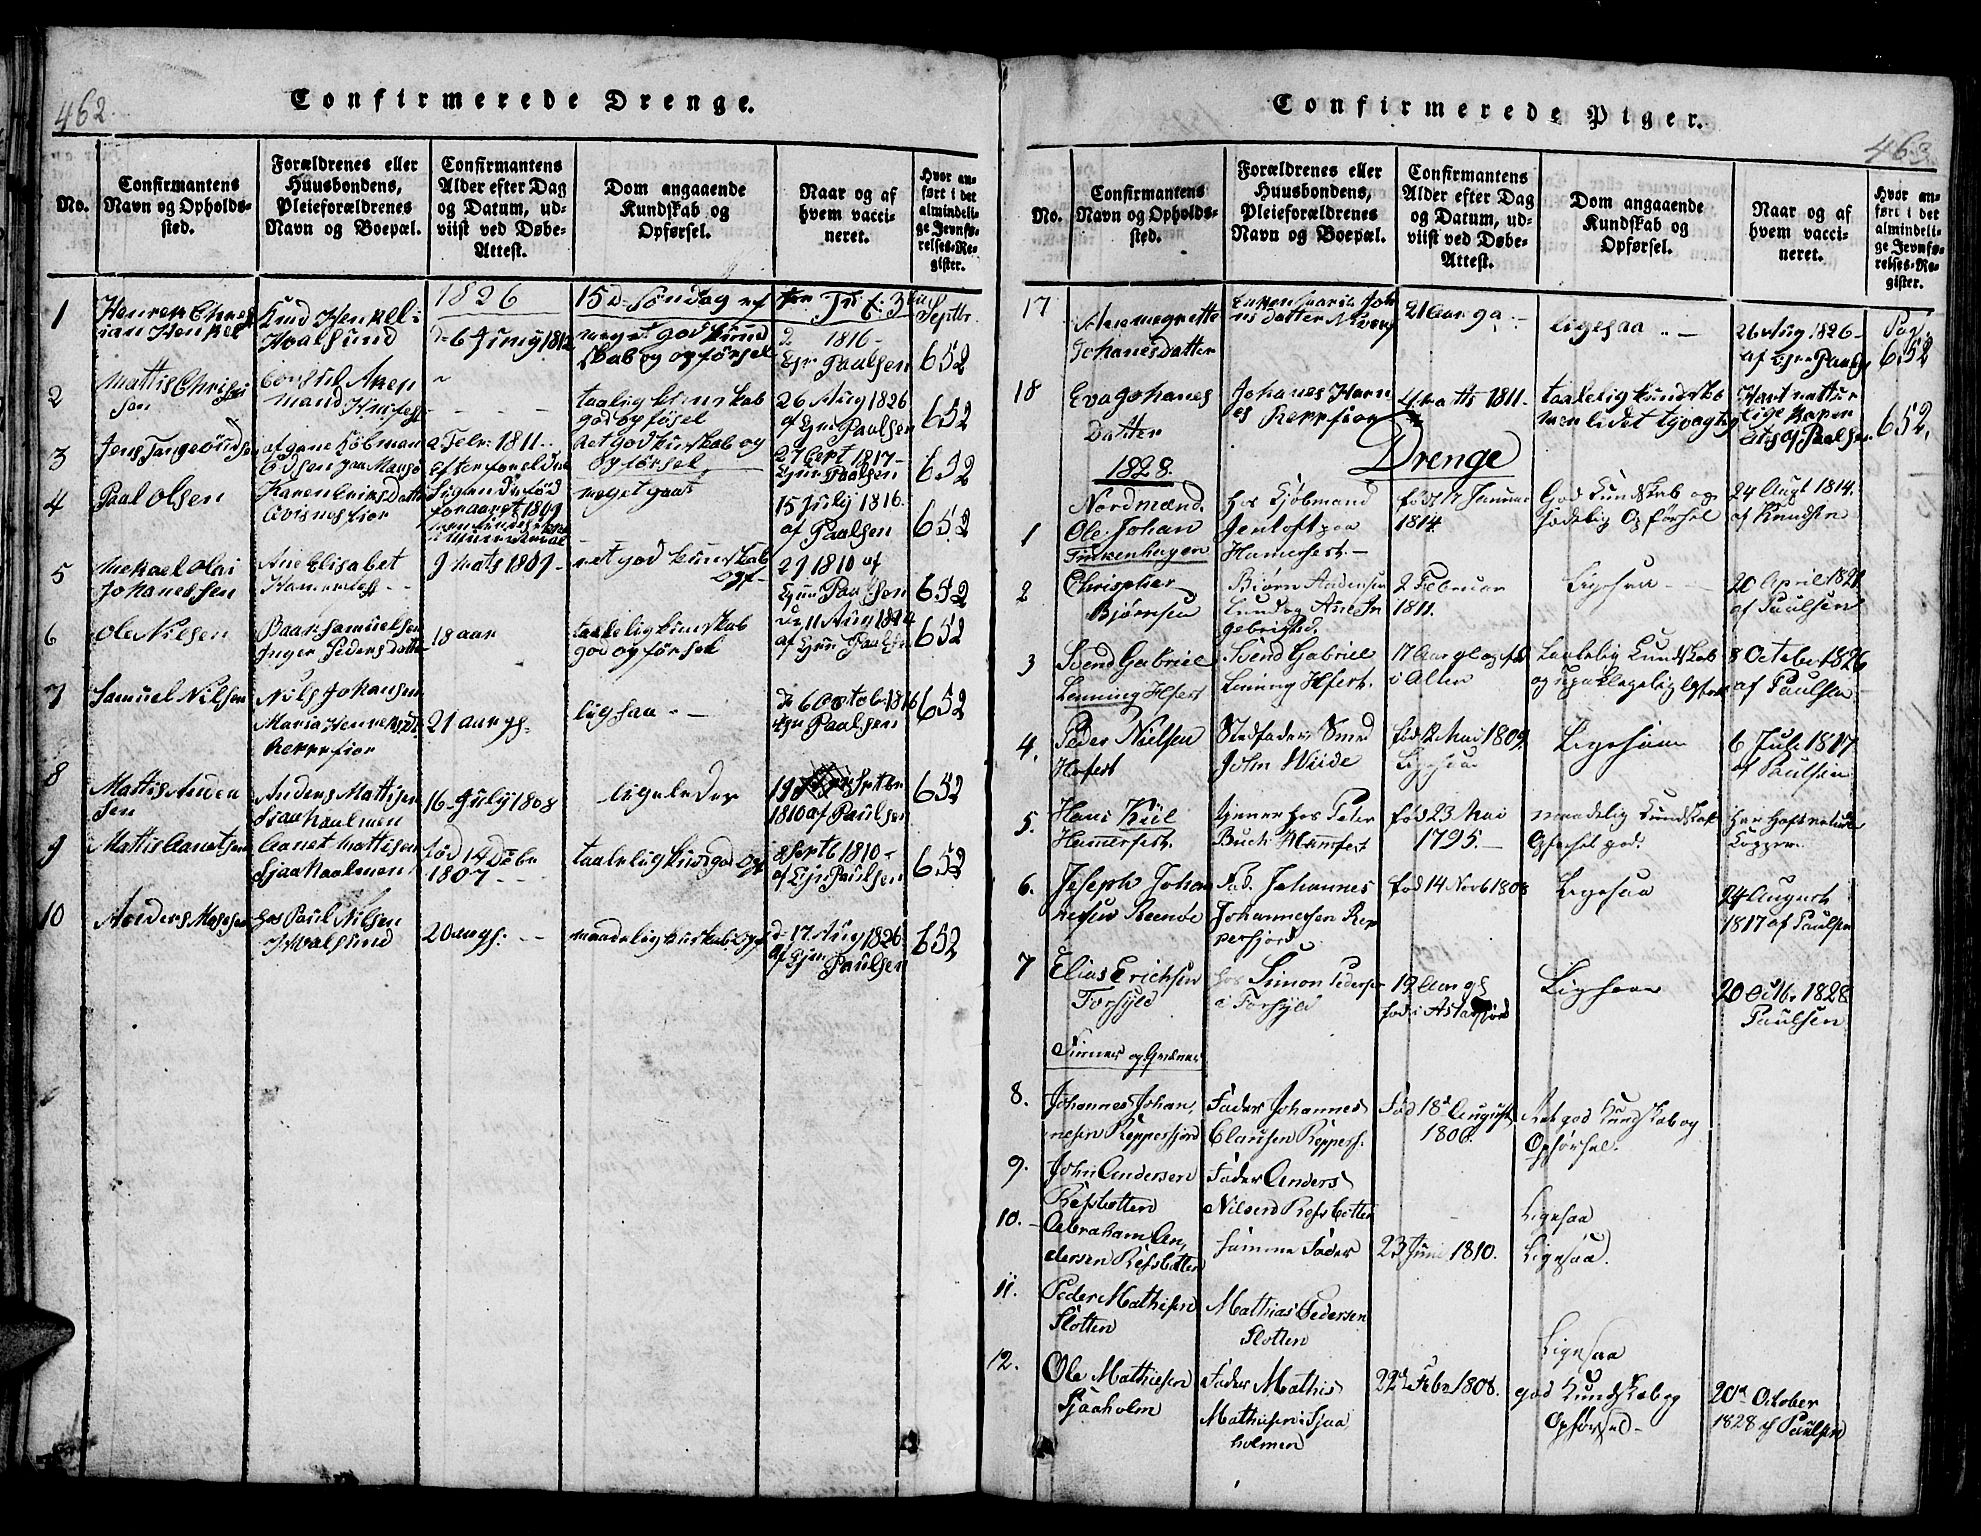 462.
Confirmerede Drenge.
No.
Confirmantens
Navn og Opholds-
sted.
Forældrenes eller
Huusbondens,
Pleieforældrenes
Navn og Boepæl.
Confirmantens
Alder efter Dag
og Datum, ud-
viist ved Døbe-
Attest.
Dom angaaende
Kundskab og
Opførsel.
Naar og af
hvem vacci-
neret.
Hvor an-
ført i det
almindeli-
ge Jevnfø-
relses-Re-
gister.
1826
15 D. Søndag ef
ter Trit: 3
Septbr.
1
Henrek Chres
ian Henkel
Knud Henkel
Hvalsund
6 Juny 1812
meget god kund
skab og opførsel
1816
Paalsen
652
2
Mattis Chrisen
sen
Consul Aken
taalig kunskab
god og føsel
26 Aug 1826
af Paalsen
652
3
2 Febr: 1811
ret god kunskab og
opførsel
1817
Paalsen
652
4
Paal Olsen
Karen Eriksdatter
meget godt
15 July 1816
af Paalsen
652
5
Mickael Olai
Johanessen
Ane Elisabet
9 Mats 1809
ret god kunskab
1810 af
Paalsen
652
6
Ole Nilsen
Baar Samuelsen
Inger Pedersdatter
18 aar
taalelig kunskab
god og førsel
11 Aug 1824
af Paalsen
652
7
Samuel Nilsen
Nils Johansen
Maria Henreksdt.
Repperfior
21 aar
ligesaa
6 October 1816
Paalsen
652
8
Mattis Anden
sen
Anders Mattisen
Siaaholmen
16 July 1808
ligeledes
1810 af Paulsen
652
9
Mattis Aanetsen
Aanet Mattisen
Sjaaholmen
født 14 Debr
1807
8 Septb 1810
af Paulsen
652
10
Anders
hos Paul Nilsen
Hvalsund
20
maadelig kunskab
d. 17 Aug 1826
af Paulsen
652
463
Confirmerede Piger.
No.
Confirmantens
Navn og Opholds-
sted.
Forældrenes eller
Huusbondens,
Pleieforældrenes
Navn og Boepæl.
Confirmantens
Alder efter Dag
og Datum, ud-
viist ved Døbe-
Attest.
Dom angaaende
Kundskab og
Opførsel.
Naar og af
hvem vacci-
neret.
Hvor an-
ført i det
almindeli-
ge Jevnfø-
relses-Re-
gister.
17
Anemagrette
Johanesdatter
Enken Maria Joh
nsdatter
21 Aar
ligesaa
26 Aug 1826
af Paalsen
Pag.
652
18
Eva Johanes
Datter
Johanes Hann
es Repperfior
4 Matts 1811
taalelig kundskb
men lidet
Havt nattur
lige Koper
Paalsen
652.
1828.
Drenge
Nordmænd.
1
Ole Johan
Finkenhagen
hos Kjøbmand
Jentoft paa
Hamerfest
født 17 Januar
1814
God Kundskab og
sædelig Opførsel
24 Augt 1814.
af Knudsen
2
Christpher
Bjørnsen
Biørn Andersen
Lund og Ane In
gebrigtsd.
2 Februar
1811.
Ligesaa
20 April 1821
af Paulsen
3
Svend Gabriel
Lenning Hfest
Svend Gabriel
Lening Hfest.
17 Aar gl og fød
i Alten
Taalelig Kundskab
8 October 1826
af Paulsen
4.
Peder Nielsen
Hfest
Stedfader Smed
John Wiide
fød 12 Mai 1809
Ligesaa
Ligesaa
6 Juli 1817
af Paulsen
5.
Hans Kiil
Hammerfest.
tjener hos Peter
Buch Hamfest
fød 23 Mai
1795.
maadelig Kundskab
Opførsel god.
Har haft naturl.
Kopper
6.
Joseph Johan
nesen
Fad. Johannes
Johannessen Rep
perfjord
fød 14 Novb 1808
Ligesaa
24 August
1817 af Paulsen
7
Elias Erichsen
Forsyld
hos Simon Peders
i Forsyld
19 Aar gl
fød i Astafjord
Ligesaa
20 Octbr 1828
Paulsen
Finner og Qvæner
8.
Johannes Johan,
nesen Repperfjord
Fader Johannes
Clausen Repperf.
Fød 18d August
1806.
Ret god Kundskab og
Opførsel.
9.
John Andersen
Refsbotten
Fader Anders
Nilsen Refsbotten
Ligesaa
10.
Abraham An,
dersen Refsbotten
samme Fader
23 Juni 1810.
Ligesaa.
11.
Peder Mathisen
Slotten
Mathias Pedersen
Slotten
Ligesaa
12.
Ole Mathiesen
Sjaaholm
Fader Mathis
Mathiesen Sjaa
holmen
22d Febr 1808.
god Kundskab og
Opførsel
20d October
1828 af Paulsen